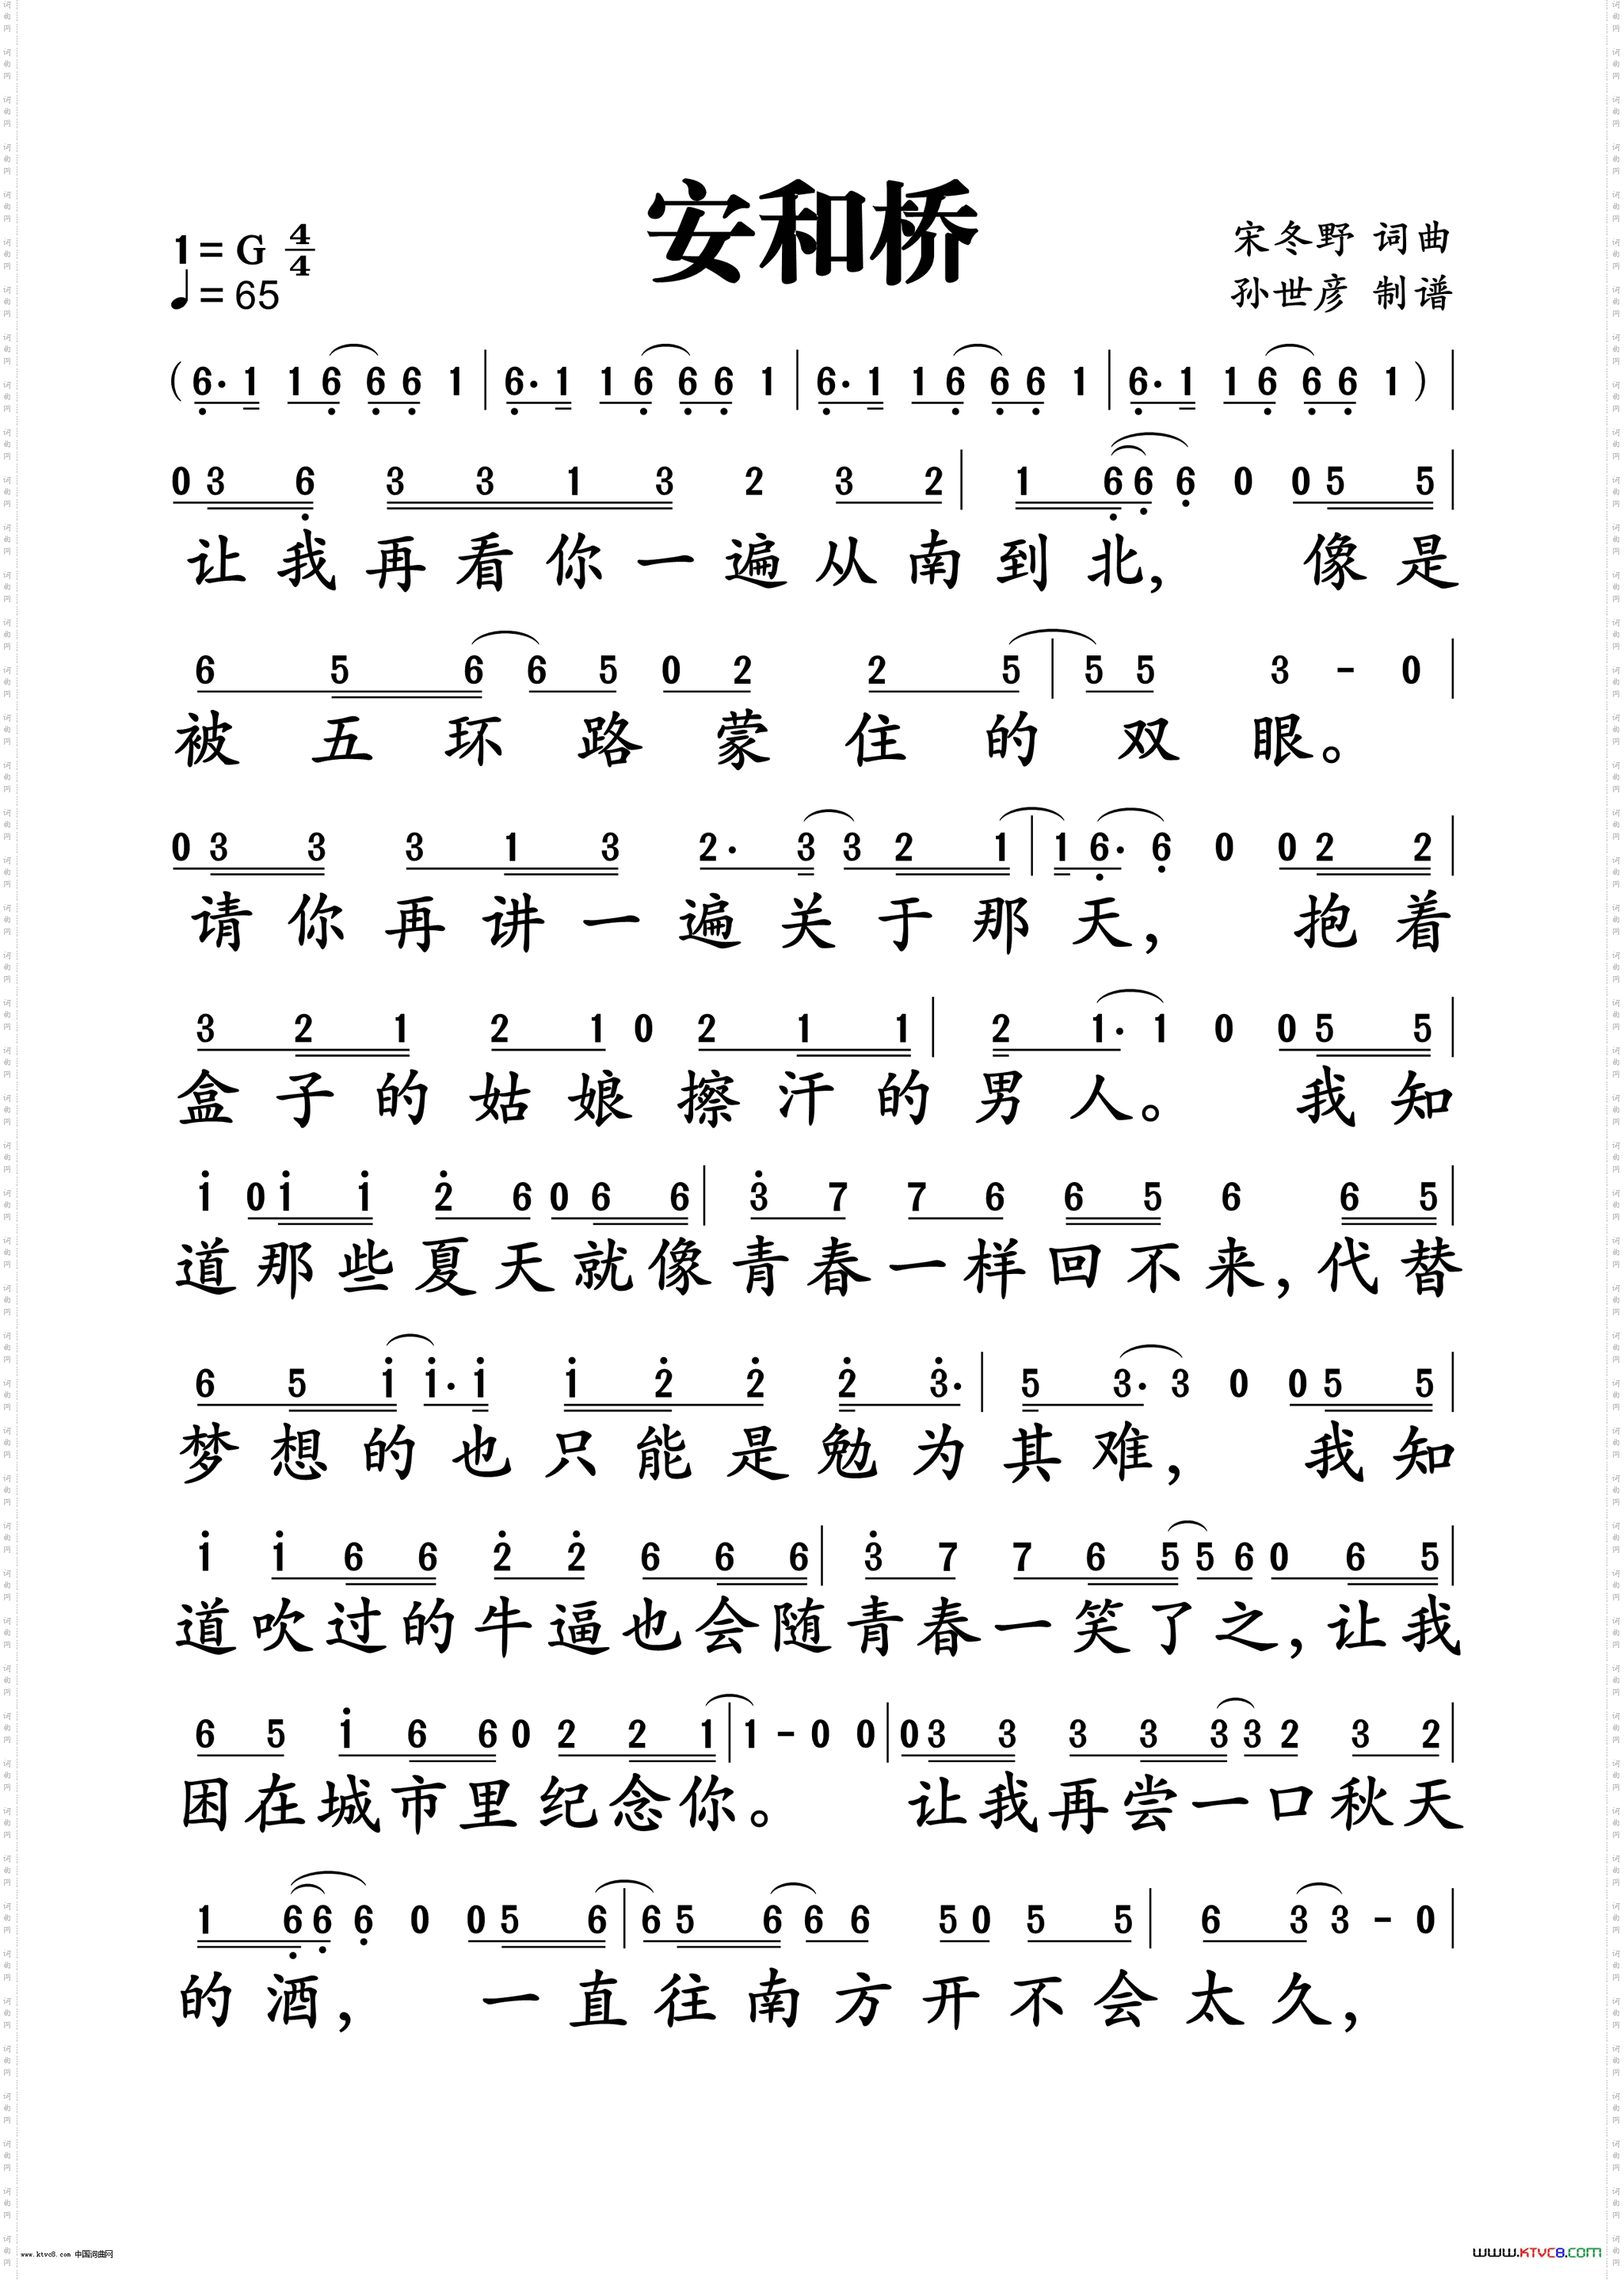 安和桥
1=G 4/4
♩=65
宋冬野 词曲
孙世彦 制谱
( 6· 1 1 6 6 6 1 | 6· 1 1 6 6 6 1 | 6· 1 1 6 6 6 1 | 6· 1 1 6 6 6 1 ) |
0 3 6 3 3 1 3 2 3 2 | 1 6 6 6 0 0 5 5 |
让我再看你一遍从南到北, 像是
6 5 6 6 5 0 2 2 5 | 5 5 3 - 0 |
被五环路蒙住的双眼。
0 3 3 3 1 3 2· 3 3 2 1 | 1 6· 6 0 0 2 2 |
请你再讲一遍关于那天, 抱着
3 2 1 2 1 0 2 1 1 | 2 1· 1 0 0 5 5 |
盒子的姑娘擦汗的男人。 我知
1 0 1 1 2 6 0 6 6 | 3 7 7 6 6 5 6 6 5 |
道那些夏天就像青春一样回不来,代替
6 5 1 1· 1 1 2 2 2 3· | 5 3· 3 0 0 5 5 |
梦想的也只能是勉为其难, 我知
1 1 6 6 2 2 6 6 6 | 3 7 7 6 5 5 6 0 6 5 |
道吹过的牛逼也会随青春一笑了之,让我
6 5 1 6 6 0 2 2 1 | 1 - 0 0 | 0 3 3 3 3 3 3 2 3 2 |
困在城市里纪念你。 让我再尝一口秋天
1 6 6 6 0 0 5 6 | 6 5 6 6 6 5 0 5 5 | 6 3 3 - 0 |
的酒, 一直往南方开不会太久,
www.ktvc8.com 中国词曲网
www.KTVC8.com